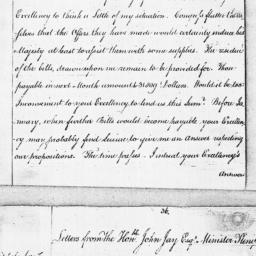 Excellency to think a little of my situation. Congress flatter them-
selves that the Offers they have made would certainly induce his
Majesty at least to assist them with some supplies. The residue
of the bills, drawn upon me remain to be provided for. Those
payable in next Month amount to Dollars. Would it be too
Inconvenient to your Excellency to lend us this Sum. Before Ja-
nuary, when further Bills would become payable your Excellen-
cy may probably find leisure to give me an Answer respecting
our propositions. The time presses. I intreat your Excellency's
Answer
36.
Letters from the Honble. John Jay Esqr. Minister Pleni